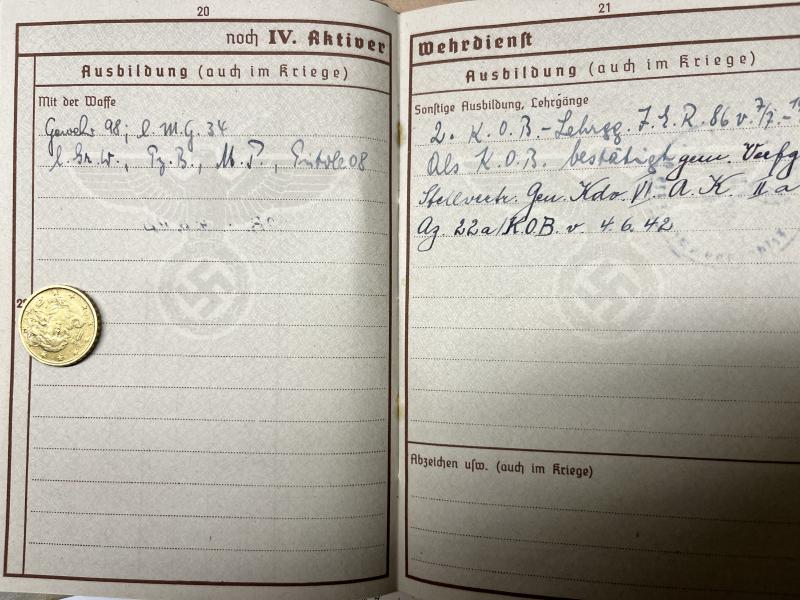 20
noch IV. Aktiver
Ausbildung (auch im Kriege)
Mit der Waffe
Gewehr 98; l. M.G. 34
l. Gr. W., Pz. B., M. P., Pistole 08
21
Wehrdienst
Ausbildung (auch im Kriege)
Sonstige Ausbildung, Lehrgänge
2. K.O.B.-Lehrgg. J.E.R. 86 v. 7/7.-
Als K.O.B. bestätigt gem. Verfg
Stellvertr. Gen. Kdo. VI. A.K. II a
Az. 22a/K.O.B. v. 4.6.42
Abzeichen usw. (auch im Kriege)